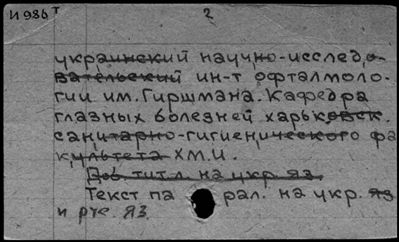 И986т 2
украинский научно-исследо-
вательский ин-т офталмоло-
гии им. Гиршмана. Кафедра
глазных болезней харьковск.
санитарно-гигиенического фа
культета ХМИ.
Доб. тит. л. на укр. яз.
Текст па рал. на укр. яз
и рус. яз.